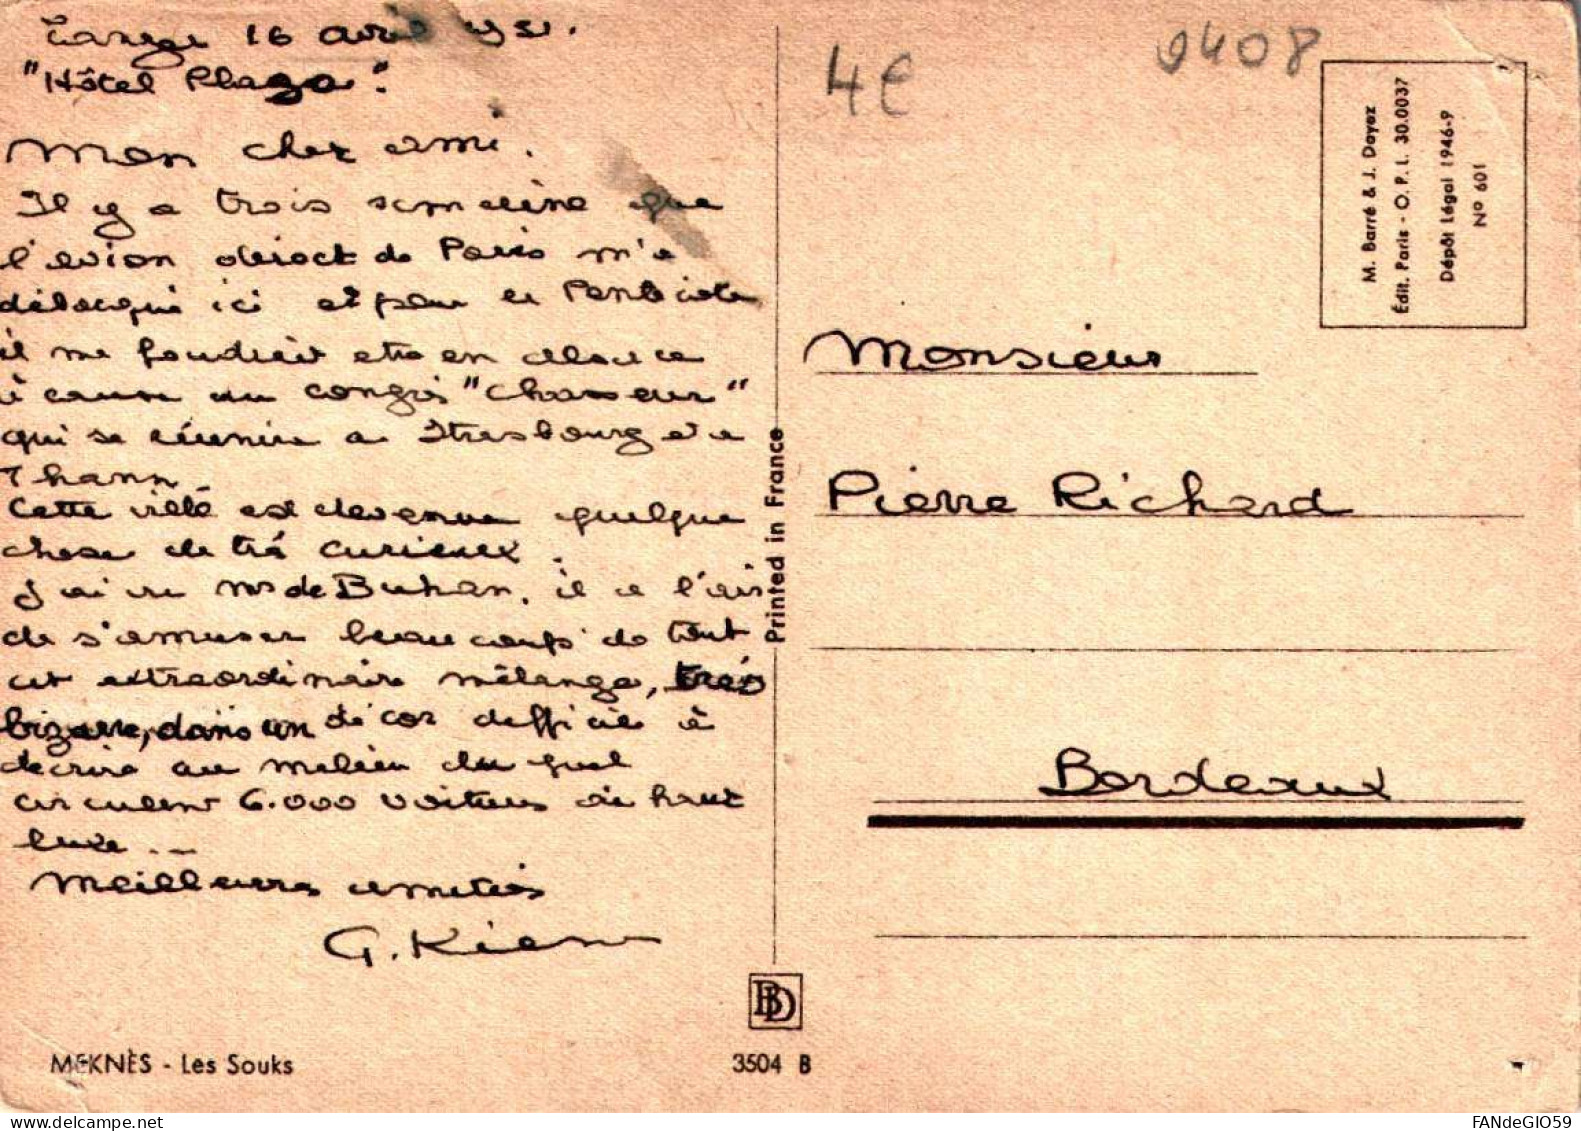 16 avril 
"Hôtel Plaza".
Mon cher ami.
Il y a trois semaine que
l'avion direct de Paris m'a
ici et pour la Pentecôte
il me faudrait etre en alsace
à cause du congrès "Chasseur"
qui se réunira a Strasbourg et a
Thann.
Cette ville est devenue quelque
chose de très curieux.
J'ai vu Mr de Buhan, il a l'air
de s'amuser beaucoup de tout
cet extraordinaire mélange, très
bizarre, dans un décor difficile à
décrire au milieu du quel
circulent 6.000 voitures de haut
luxe ...
Meilleures amitiés
G. Kien
MEKNÈS - Les Souks
3504 B
BD
Printed in France
4€
0408
M. Barré & J. Dayez
Édit. Paris - O. P. I. 30.0037
Dépôt Légal 1946-9
N° 601
Monsieur
Pierre Richard
Bordeaux
FANdeGIO59